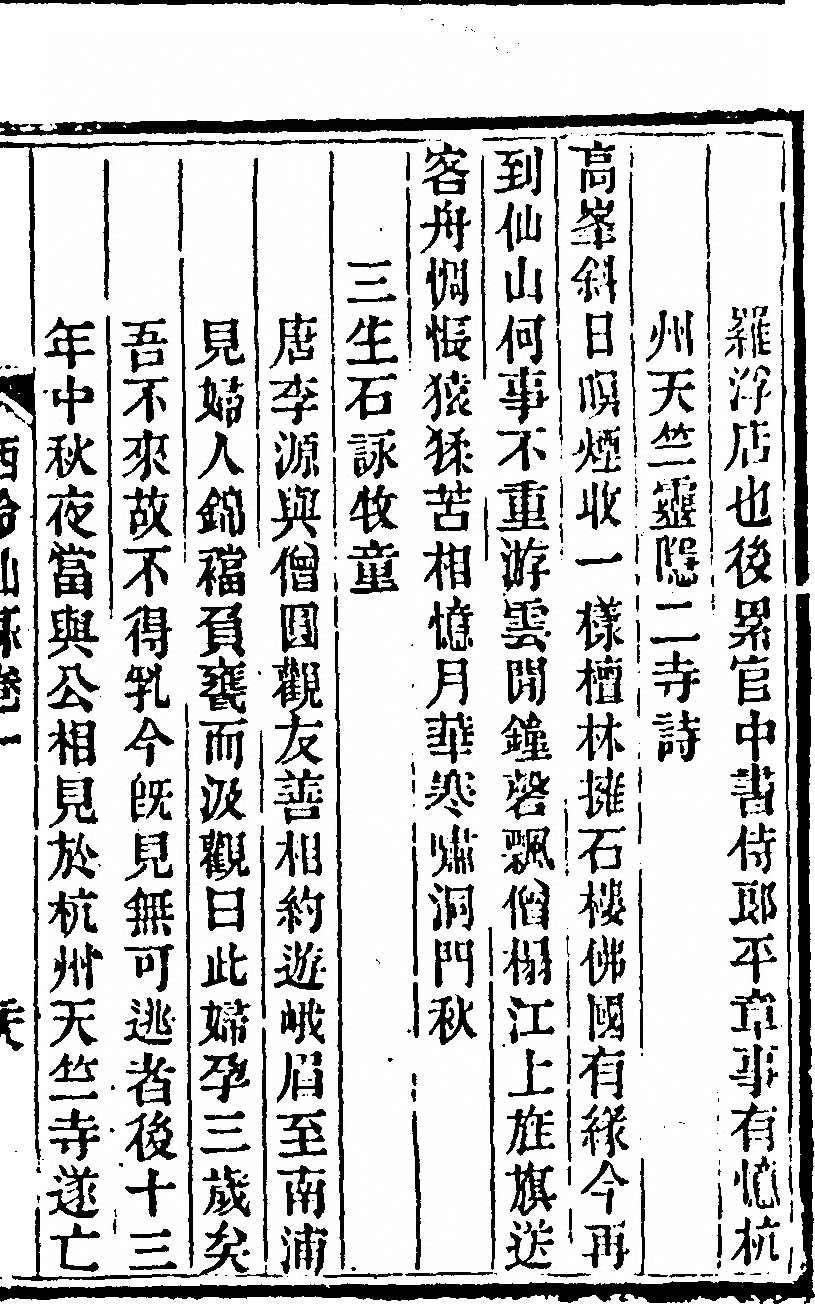 羅浮店也後累官中書侍郎平章事有憶杭
州天竺靈隱二寺詩
高峯斜日暝煙收一樣檀林擁石樓佛國有緣今再
到仙山何事不重游雲閒鐘磬飄僧榻江上旌旗送
客舟惆悵猿猱苦相憶月華寒嘯洞門秋
三生石詠牧童
唐李源與僧圓觀友善相約遊峨眉至南浦
見婦人錦襠負甕而汲觀曰此婦孕三歲矣
吾不來故不得乳今旣見無可逃者後十三
年中秋夜當與公相見於杭州天竺寺遂亡